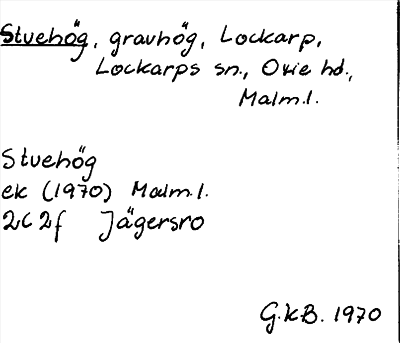 Stuehög, gravhög, Lockarp,
Lockarps sn., Oxie hd.,
Malm.l.
Stuehög
ek (1970) Malm.l.
2C 2f Jägersro
G.K.B. 1970